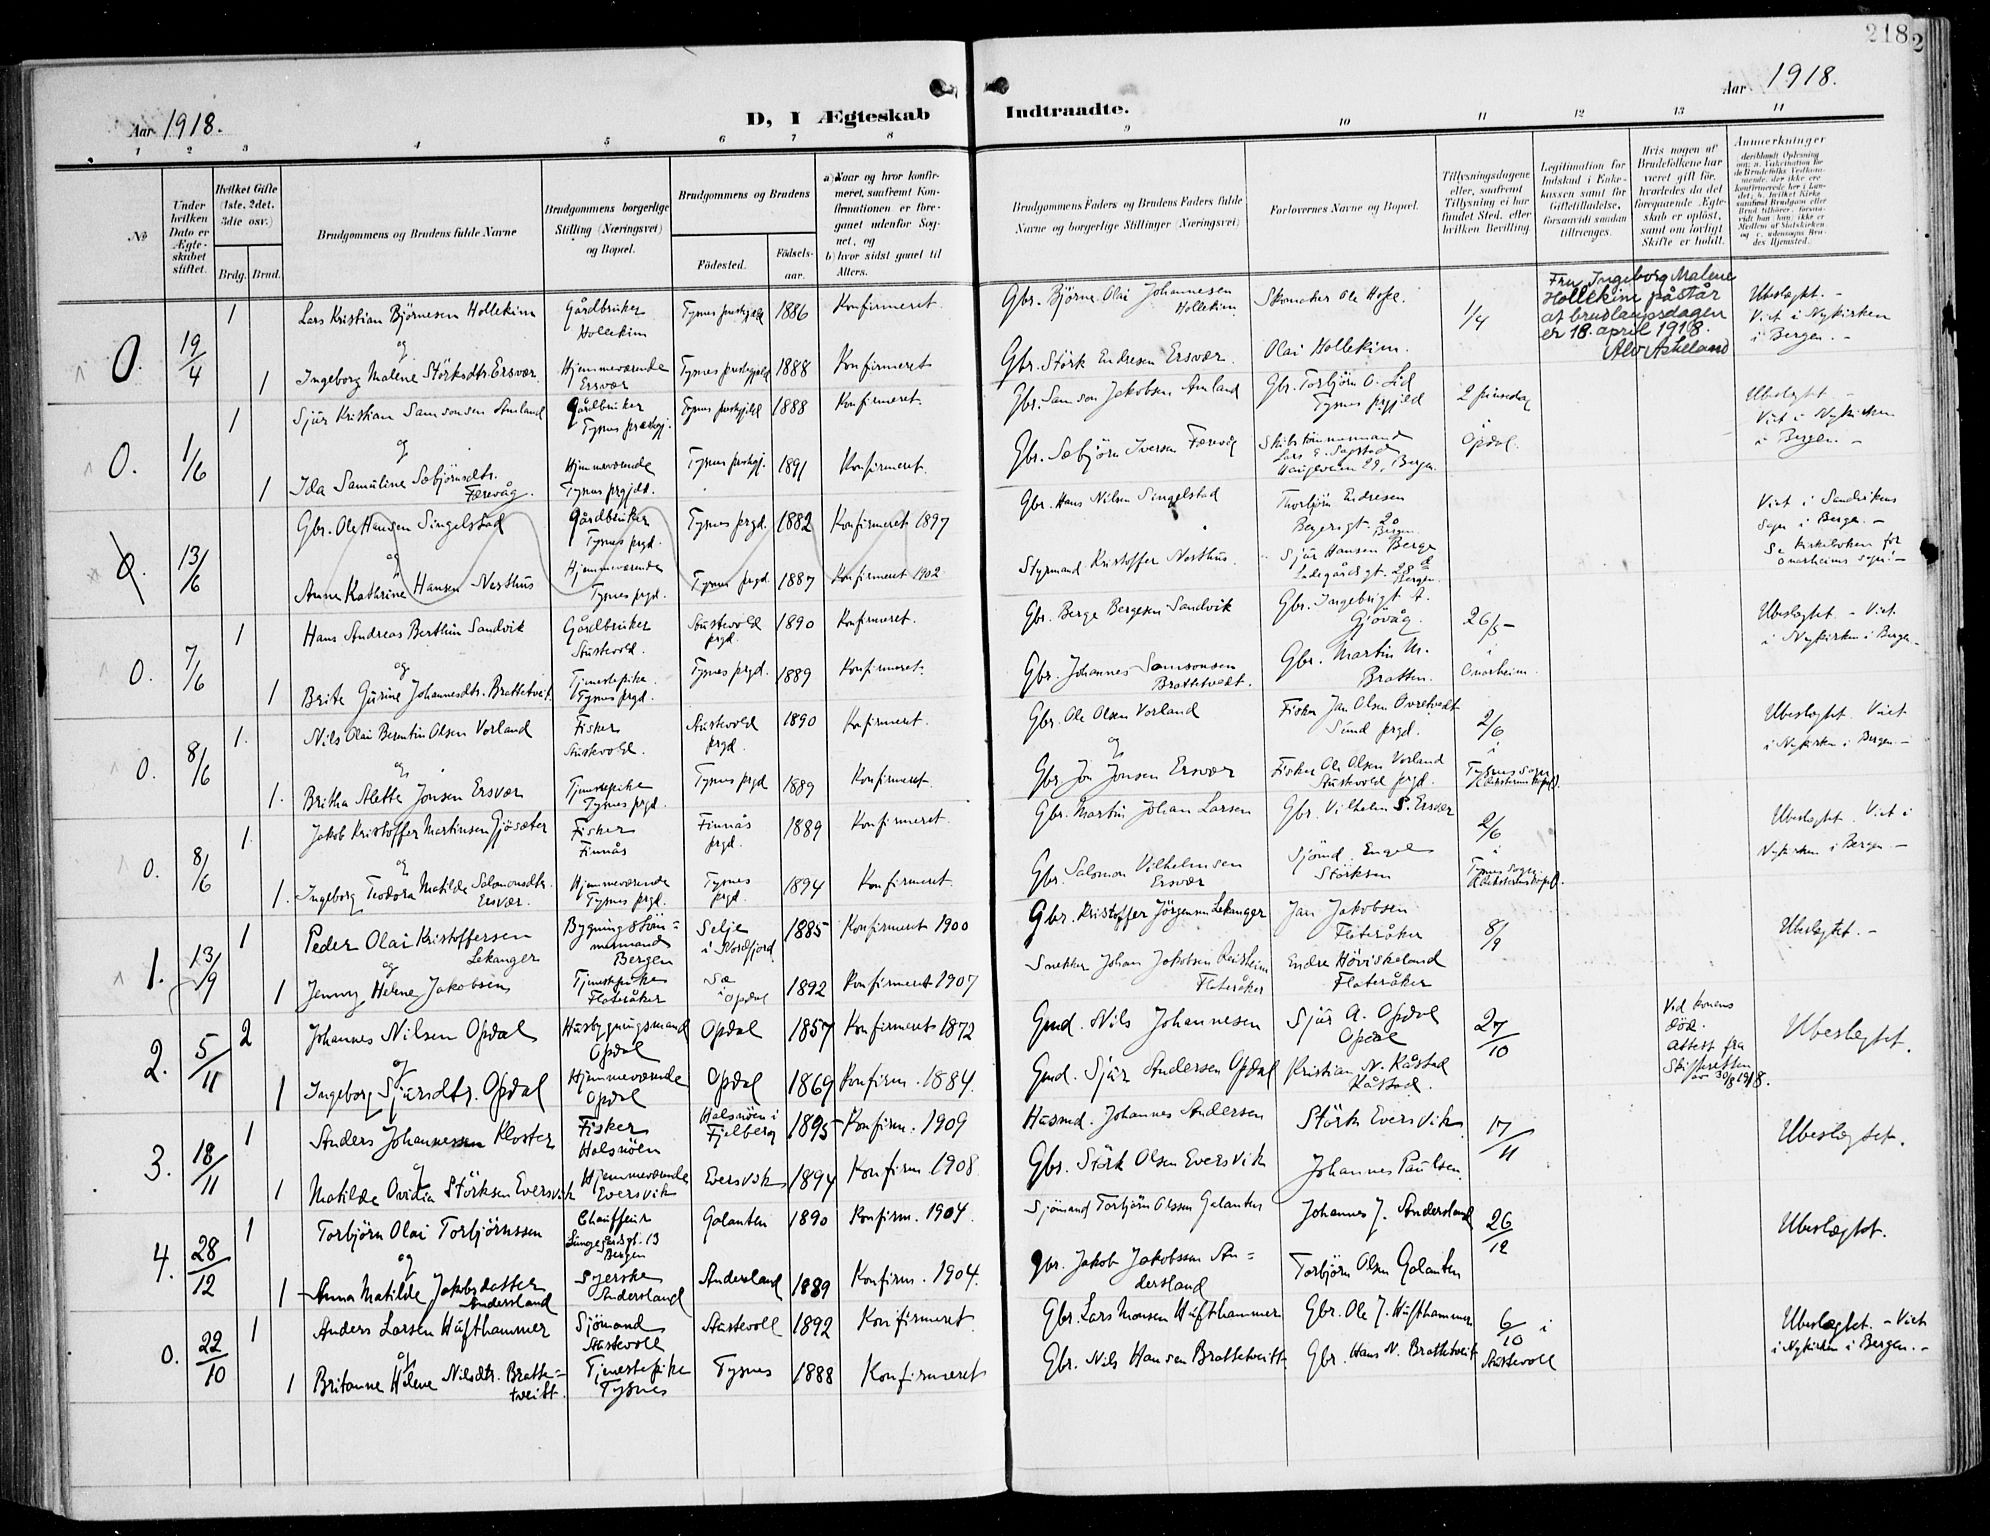 218
2
Aar 1918.
D, I Ægteskab Indtraadte.
Aar 1918.
1 2 3 4 5 6 7 8 9 10 11 12 13 14
No
Under hvilken Dato er Ægteskabet stiftet.
Hvilket Gifte (1ste, 2det, 3die osv.)
Brdg. Brud.
Brudgommens og Brudens fulde Navne
Brudgommens borgerlige Stilling (Næringsvei) og Bopæl.
Brudgommens og Brudens
Fødested.
Fødselsaar.
a) Naar og hvor konfirmeret, saafremt Konfirmationen er foregaaet udenfor Sognet, og
b) hvor sidst gaaet til Alters.
Brudgommens Faders og Brudens Faders fulde Navne og borgerlige Stillinger (Næringsvei)
Forlovernes Navne og Bopæl.
Tillysningsdagene eller, saafremt Tillysning ei har fundet Sted, efter hvilken Bevilling
Legitimation for Indskud i Enkekassen samt for Giftetilladelse, forsaavidt saadan tiltrænges.
Hvis nogen af Brudefolkene har været gift før, hvorledes da det foregaaende Ægteskab er opløst, samt om lovligt Skifte er holdt.
Anmerkninger
O. 19/4 1 Lars Kristian Björnesen Hollekim Gårdbruker Hollekim Tysnes prestgjeld 1886 Konfirmeret. Gbr. Björne Olai Johannesen Hollekim Skomaker Ole Hope. 1/4
Fru Ingeborg Malene Hollekim påstår at brudlaupsdagen er 18. april 1918. Alv Askeland
Ubeslægt. - Viet i Nykirken i Bergen. -
og
1 Ingeborg Malene Störksdtr. Ersvær. Hjemmeværende Ersvær Tysnes prestegjeld 1888 Konfirmeret Gbr. Störk Endresen Ersvær. Olai Hollekim.
O. 1/6 1 Sjur Kristian Samsonsen Amland Gårdbruker Tysnes prestgj. Tysnes prestgjeld 1888 Konfirmeret. Gbr. Samson Jakobsen Amland Gbr. Torbjörn O. Lid Tysnes prgjeld 2 pinsedag Opdal. Ubeslægtet - Viet i Nykirken i Bergen. -
og
1 Ida Samuline Sæbjörnsdtr. Færevåg. Hjemmeværende Tysnes prgjd. Tysnes prestgj. 1891 Konfirmeret. Gbr. Sæbjörn Iversen Færevåg Skibstömmermand Lars E. Sagstad Haugeveien 29, Bergen.
O. 13/6 Gbr. Ole Hansen Singelstad Gårdbruker Tysnes prgd. Tysnes prgd. 1882 Konfirmeret 1897 Gbr. Hans Nilsen Singelstad Thorbjörn Endresen Bergen Viet i Sandvikens Sogn i Bergen. - Se kirkeboken for Onarheims sogn! -
og
Anne Kathrine Hansen Nesthus Hjemmeværende Tysnes prgd. Tysnes prgd. 1887 Konfirmeret 1902 Styrmand Kristoffer Nesthus. Sjur Hansen Berge Ladegårdsgt. 28 Bergen.
O. 7/6 1 Hans Andreas Berthin Sandvik Gårdbruker Austevold. Austevold prgd. 1890 Konfirmeret. Gbr. Berge Bergesen Sandvik Gbr. Ingebrigt A. Gjövåg. 26/5 - i Onarheim. Ubeslægtet. - Viet i Nykirken i Bergen. -
og
1 Brite Gurine Johannesdtr. Brattetveit. Tjenestepike. Tysnes prgd. Tysnes prgd. 1889 Konfirmeret. Gbr. Johannes Samsonsen Brattetvedt. Gbr. Martin M. Bratten.
O. 8/6 1. Nils Olai Berentin Olsen Vorland Fisker Austevold. Austevold prgd. 1890 Konfirmeret. Gbr. Ole Olsen Vorland Fisker Jan Olsen Sund prgd. 2/6 i Tysnes sogn Ubeslægtet. Viet i Nykirken i Bergen. -
og
1. Britha Alette Jonsen Ersvær Tjenestepike Tysnes prgd. Tysnes prgd 1889 Konfirmeret. Gbr. Jon Jonsen Ersvær Fisker Ole Olsen Vorland Austevold prgd.
O. 8/6 1. Jakob Kristoffer Martinsen Gjösæter Fisker Finnås Finnås prgd. 1889 Konfirmeret. Gbr. Martin Johan Larsen Gbr. Vilhelm S. Ersvær 2/6 i Tysnes sogn Ubeslægtet. Viet i Nykirken i Bergen -
og
1. Ingeborg Teodora Matilde Salomonsdtr. Ersvær. Hjemmeværende Tysnes prgd. Tysnes prgd. 1894 Konfirmeret. Gbr. Salomon Vilhelmsen Ersvær Sjömd. Engel Störksen
1. 13/9 1 Peder Olai Kristoffersen Lekanger Bygningstömmermand Bergen Selje i Nordfjord 1885 Konfirmeret 1900 Gbr. Kristoffer Jörgensen Lekanger Jan Jakobsen Flateråker 8/9 Ubeslægtet. -
og
1 Jenny Helene Jakobsen Tjenestepike Flateråker Opdal 1892 Konfirmeret 1907 Snekker Johan Jakobsen Flateråker Endre Höviskeland Flateråker
2. 5/11 2 Johannes Nilsen Opdal Husbygningsmand Opdal Opdal 1857 Konfirmeret 1872 Gmd. Nils Johannesen Sjur A. Opdal Opdal 27/10 Ved konens död. Attest fra Skifteretten av 30/8 1918. Ubeslægtet.
og
1 Ingeborg Sjursdtr. Opdal Hjemmeværende Opdal Opdal 1869 Konfirm. 1884. Gmd. Sjur Andersen Opdal Kristian N. Kåstad Kåstad.
3. 18/11 1 Anders Johannessen Kloster Fisker Halsnöen Halsnöen i Fjelberg 1895 Konfirm. 1909 Husmd. Johannes Andersen Störk Eversvik 17/11 Ubeslægtet.
og
1 Matilde Ovidia Störksen Eversvik Hjemmeværende Eversvik Eversvik 1894 Konfirm 1908. Gbr. Störk Olsen Eversvik Johannes Paulsen
4. 28/12 1 Torbjörn Olai Torbjörnssen Chauffeur Bergen Galanten 1890 Konfirm. 1904. Sjömand Torbjörn Olssen Galanten Johannes J. Andersland 26/12 Ubeslægtet.
og
1 Anna Matilde Jakobsdatter Andersland Syerske Andersland Andersland 1889 Konfirm. 1904. Gbr. Jakob Jakobssen Andersland Torbjörn Olsen Galanten
O. 22/10 1 Anders Larsen Hufthammer Sjömand Austevoll Austevoll 1892 Konfirmeret Gbr. Lars Monsen Hufthammer Gbr. Ole J. Hufthammer 6/10 i Austevoll Ubeslægtet. - Viet i Nykirken i Bergen. -
og
1 Britanne Helene Nilsdtr. Brattetveitt. Tjenestepike Tysnes Tysnes 1888 Konfirmeret Gbr. Nils Hansen Brattetveitt Gbr. Hans N. Brattetveit